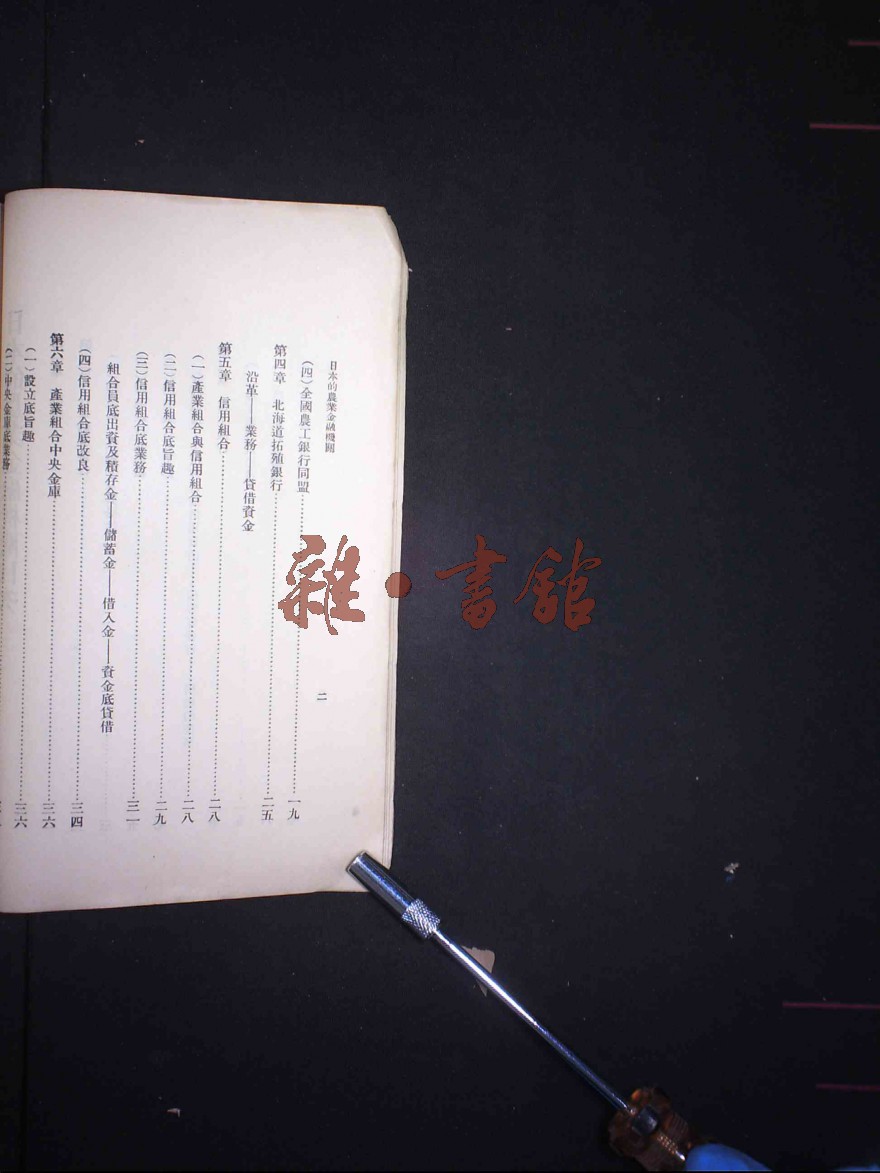 日本的農業金融機關
二
(四)全國農工銀行同盟……一九
第四章　北海道拓殖銀行……二五
沿革——業務——貸借資金
第五章　信用組合……二八
(一)產業組合與信用組合……二八
(二)信用組合底旨趣……二九
(三)信用組合底業務……三一
組合員底出資及積存金——儲蓄金——借入金——資金底貸借
(四)信用組合底改良……三四
第六章　產業組合中央金庫……三六
(一)設立底旨趣……三六
(二)中央金庫底業務……
雜·書館